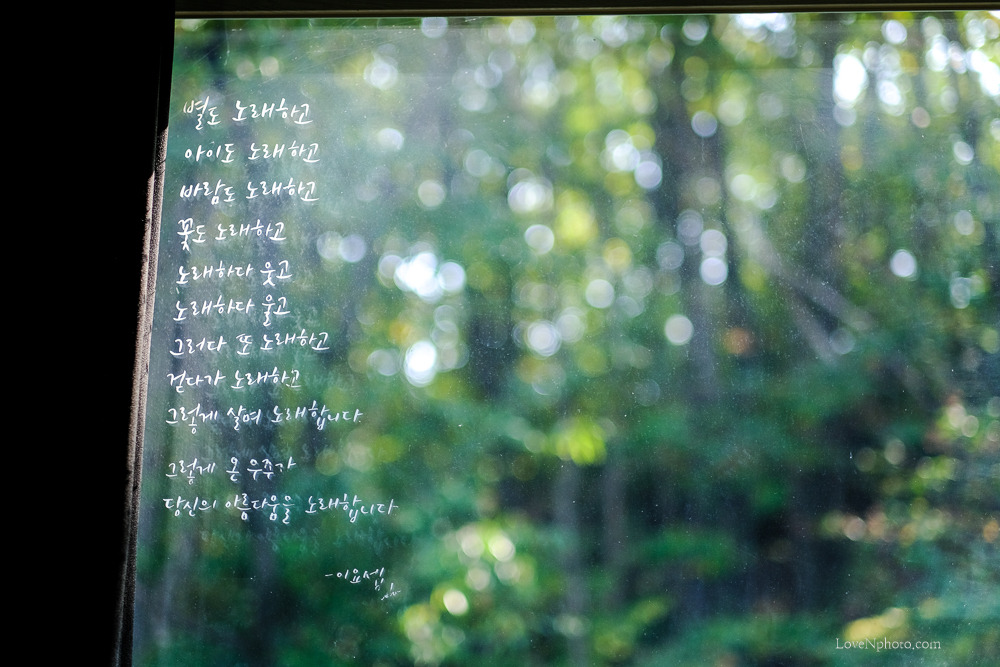 별도 노래하고
아이도 노래하고
바람도 노래하고
꽃도 노래하고
노래하다 웃고
노래하다 울고
그러다 또 노래하고
걷다가 노래하고
그렇게 살며 노래합니다.
그렇게 온 우주가
당신의 아름다움을 노래합니다
-이요셉
LoveNphoto.com